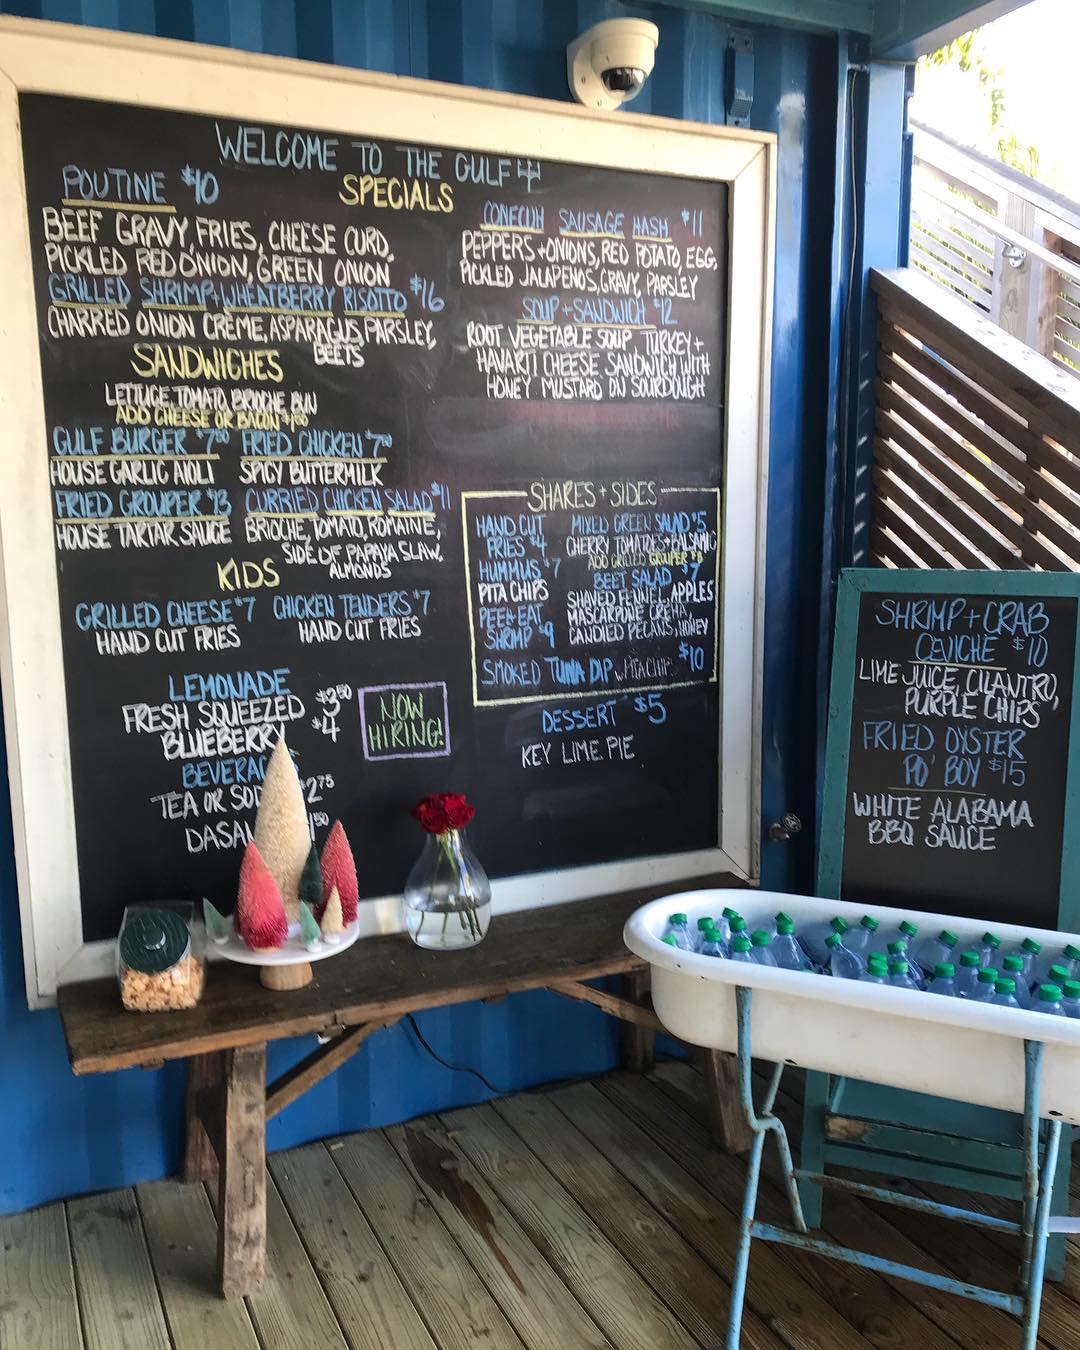 WELCOME TO THE GULF
SPECIALS
POUTINE $10
BEEF GRAVY, FRIES, CHEESE CURD,
PICKLED RED ONION, GREEN ONION
GRILLED SHRIMP+WHEATBERRY RISOTTO $16
CHARRED ONION CREME, ASPARAGUS, PARSLEY,
BEETS
CONECUH SAUSAGE HASH $11
PEPPERS+ONIONS, RED POTATO, EGG,
PICKLED JALAPENOS, GRAVY, PARSLEY
SOUP+SANDWICH $12
ROOT VEGETABLE SOUP TURKEY+
HAVARTI CHEESE SANDWICH WITH
HONEY MUSTARD ON SOURDOUGH
SANDWICHES
LETTUCE, TOMATO, BRIOCHE BUN
ADD CHEESE OR BACON
GULF BURGER $7.50 FRIED CHICKEN $7.50
HOUSE GARLIC AIOLI SPICY BUTTERMILK
FRIED GROUPER $13 CURRIED CHICKEN SALAD $11
HOUSE TARTAR SAUCE BRIOCHE, TOMATO, ROMAINE,
SIDE OF PAPAYA SLAW,
ALMONDS
KIDS
GRILLED CHEESE $7 CHICKEN TENDERS $7
HAND CUT FRIES HAND CUT FRIES
LEMONADE
FRESH SQUEEZED $3.50
BLUEBERRY $4
BEVERAG
TEA OR SOD $2.75
DASA
NOW
HIRING!
SHARES + SIDES
HAND CUT
FRIES $4
HUMMUS $7
PITA CHIPS
PEEL+EAT
SHRIMP $9
MIXED GREEN SALAD $5
CHERRY TOMATOES+BALSAMIC
ADD GRILLED GROUPER
BEET SALAD $7
SHAVED FENNEL, APPLES
MASCARPONE CREMA,
CANDIED PECANS, HONEY
SMOKED TUNA DIP w/PITA CHIPS $10
DESSERT $5
KEY LIME PIE
SHRIMP+CRAB
CEVICHE $10
LIME JUICE, CILANTRO,
PURPLE CHIPS
FRIED OYSTER
PO' BOY $15
WHITE ALABAMA
BBQ SAUCE